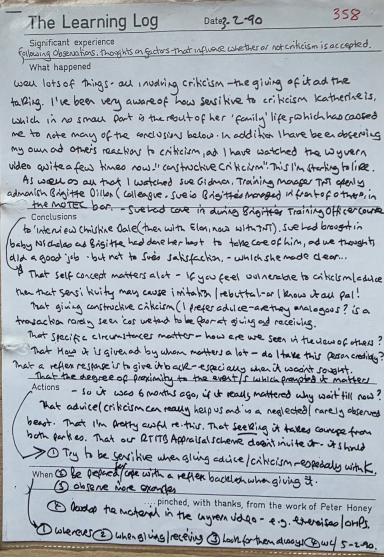 The Learning Log Date 2-2-90 358
Significant experience
Following observations. Thoughts on factors that influence whether or not criticism is accepted.
What happened
Well lots of things - all involving criticism - the giving of it and the
taking. I've been very aware of how sensitive to criticism Katherine is,
which in no small part is the result of her 'family' life, which has caused
me to note many of the conclusions below. In addition I have been observing
my own and others reactions to criticism, and I have watched the Wyvern
video quite a few times now: "Constructive Criticism". This I'm starting to like.
As well as all that I watched Sue Gidman, Training manager TNT openly
admonish Brigitte Dillon (colleague, Sue is Brigitte's manager) in front of others, in
the MOTEC bar. Sue had come in during Brigitte's Training Officer course
Conclusions
to interview Christine Dale (then with Elan, now with TNT). Sue had brought in
baby Nicholas and Brigitte had done her best to take care of him, and we thought
did a good job - but not to Sue's satisfaction - which she made clear...
That self concept matters a lot - if you feel vulnerable to criticism/advice
then that sensitivity may cause irritation/rebuttal - or I know it all pal!
That giving constructive criticism (I prefer advice - are they analogous? is a
transaction rarely seen 'cos we tend to be poor at giving and receiving.
That specific circumstances matter - how are we seen in the view of others?
That How it is given and by whom matters a lot - do I take this person credibly?
That a reflex response is to give it back - especially when it wasn't sought.
That the degree of proximity to the event/s which prompted it matters
Actions - so it was 6 months ago, if it really mattered why wait till now?
That advice/criticism can really help us and is a neglected/rarely observed
beast. That I'm pretty awful re. this. That seeking it takes courage from
both parties. That our RTITB Appraisal scheme doesn't invite it - it should
① Try to be sensitive when giving advice/criticism - especially with K.
When ② Be prepared for/cope with a reflex backlash when giving it.
③ observe more examples
....pinched, with thanks, from the work of Peter Honey
④ develop the material in the Wyvern video - e.g. exercises/OHPs.
① wherever ② when giving/receiving ③ look for them always ④ wc/ 5-2-90.